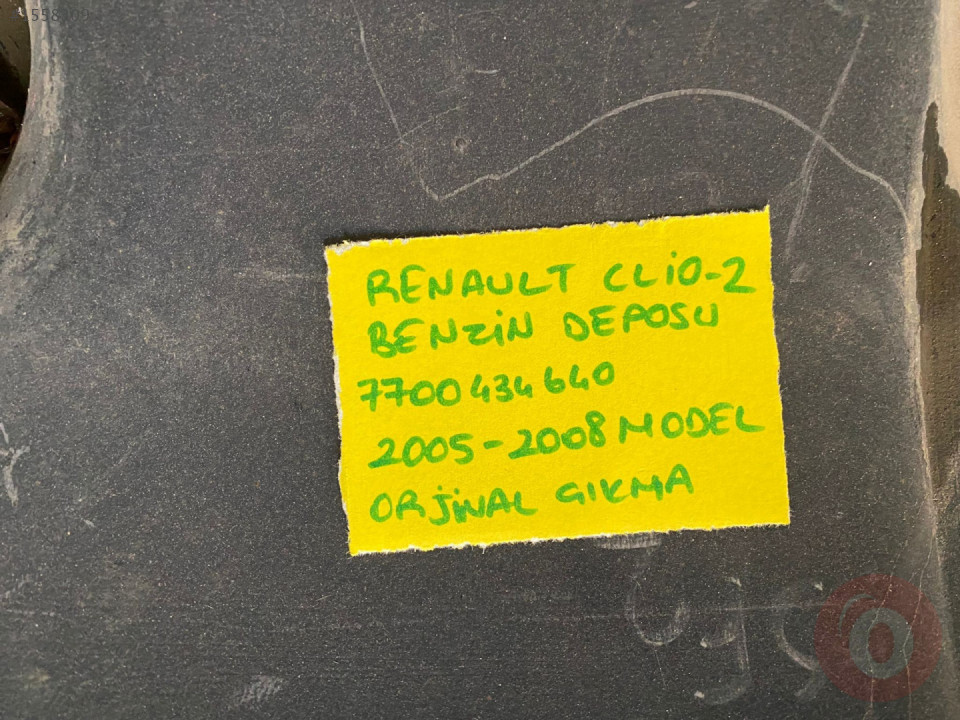 RENAULT CLİO-2
BENZİN DEPOSU
7700434640
2005-2008 MODEL
ORJİNAL ÇIKMA